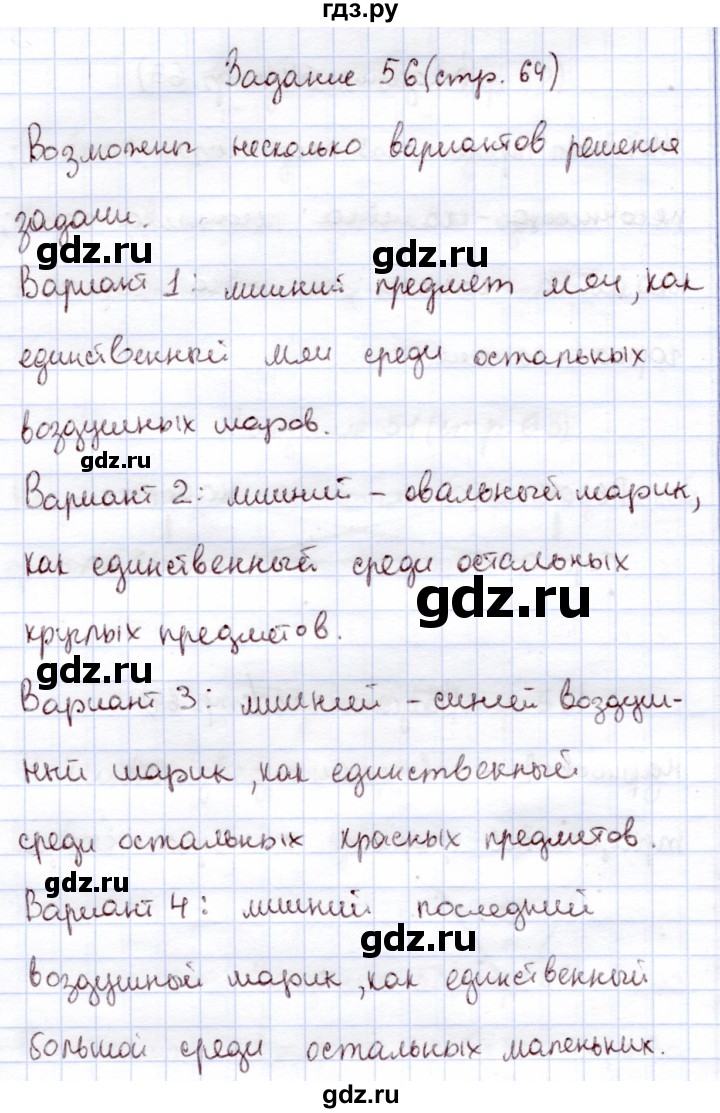 гдз.ру
Задание 56 (стр. 64)
Возможены несколько вариантов решения
задачи.
gdz.ru
gdz.ru
Вариант 1: лишний предмет мяч, как
единственный мяч среди остальных
воздушных шаров.
gdz.ru
Вариант 2: лишний - овальный шарик,
как единственный среди остальных
gdz.ru
круглых предметов.
gdz.ru
Вариант 3: лишний - синий воздуш-
ный шарик, как единственный
среди остальных красных предметов.
gdz.ru
Вариант 4: лишний последний
gdz.ru
воздушный шарик, как единственный
большой среди остальных маленьких.
gdz.ru